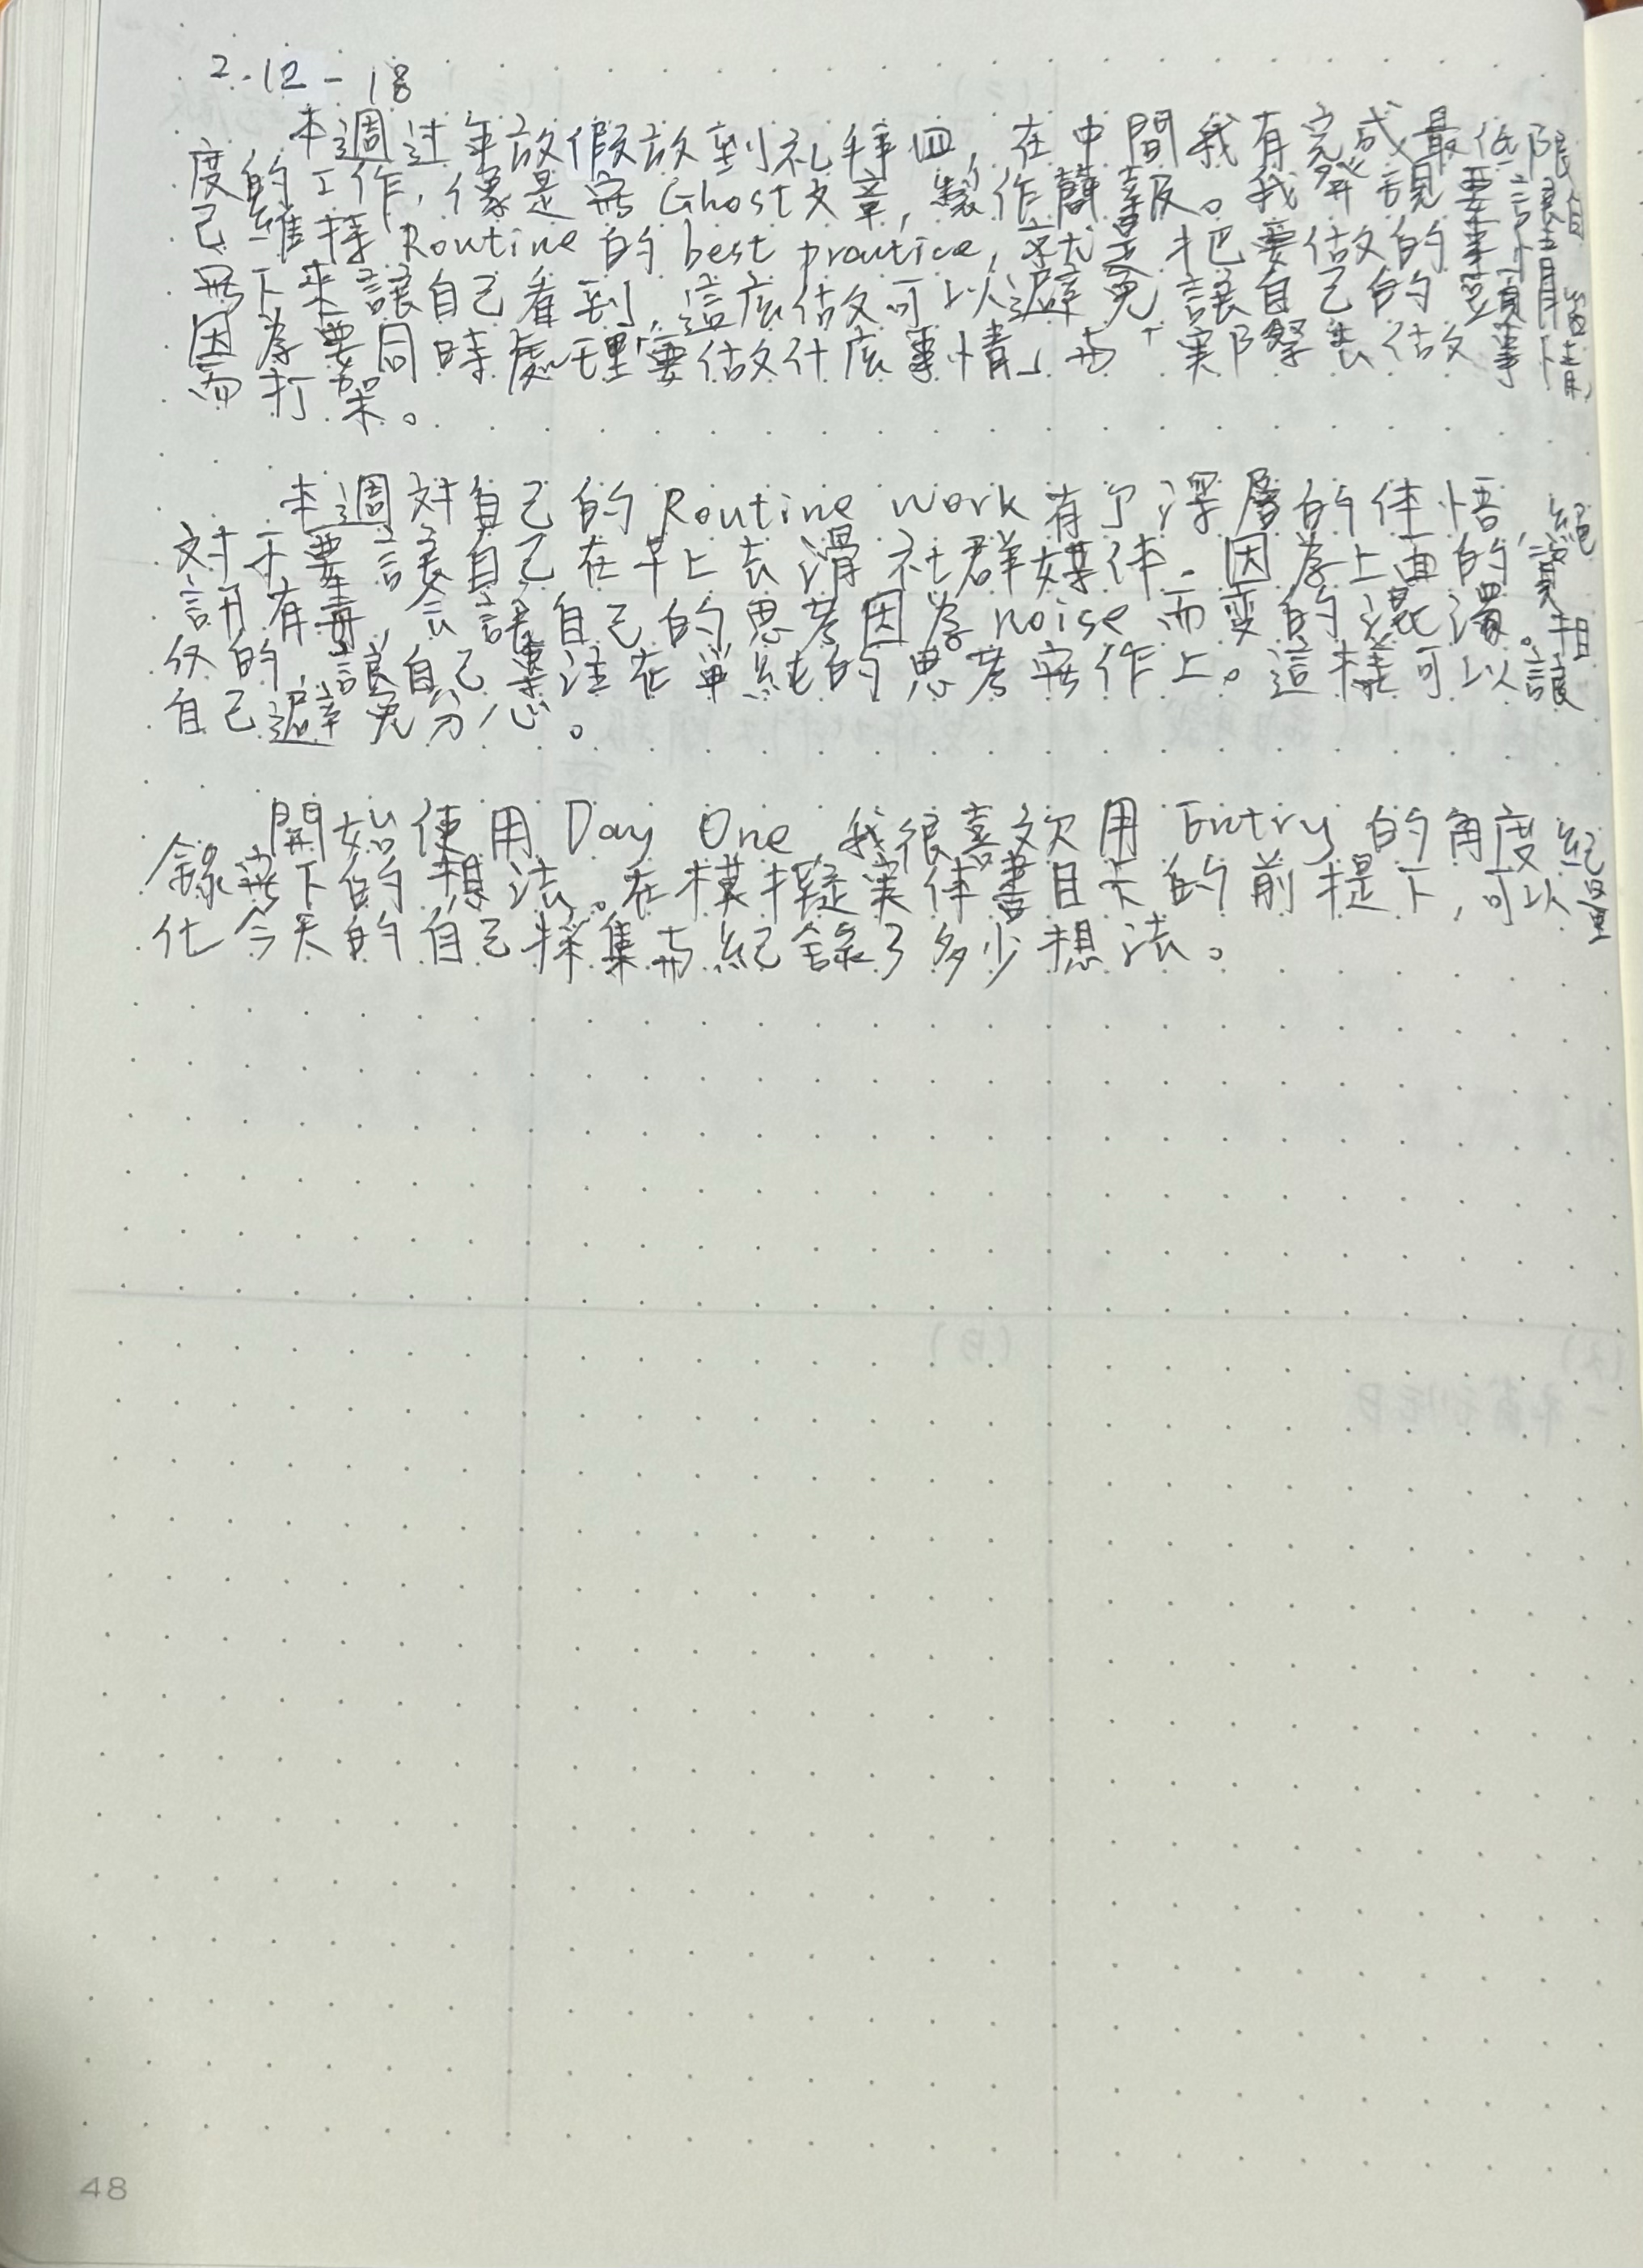 2.12-18
本週过年放假放到礼拜四，在中間我有完成最低限
度的工作，像是寫Ghost文章，製作簡報。我發現要讓自
己維持Routine的best practice，就是把要做的事情
寫下來讓自己看到，這麼做可以避免讓自己的頭腦
因為要同時處理「要做什麼事情」与「実際去做事情」
而打架。
本週对自己的Routine work有了深層的体悟，絕
对不要讓自己在早上去滑社群媒体。因為上面的資
訊有毒，会讓自己的思考因為noise而变的混濁。相
反的，讓自己專注在單純的思考寫作上。這樣可以讓
自己避免分心。
開始使用Day One 我很喜欢用Entry的角度紀
錄寫下的想法。在模擬実体書日末的前提下，可以量
化今天的自己採集与紀錄了多少想法。
48